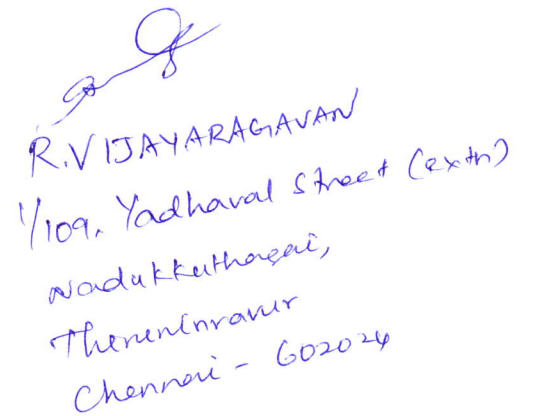 R. VIJAYARAGAVAN
1/109, Yadhaval Street (extn)
Nadukkuthagai,
Thiruninravur
Chennai - 602024